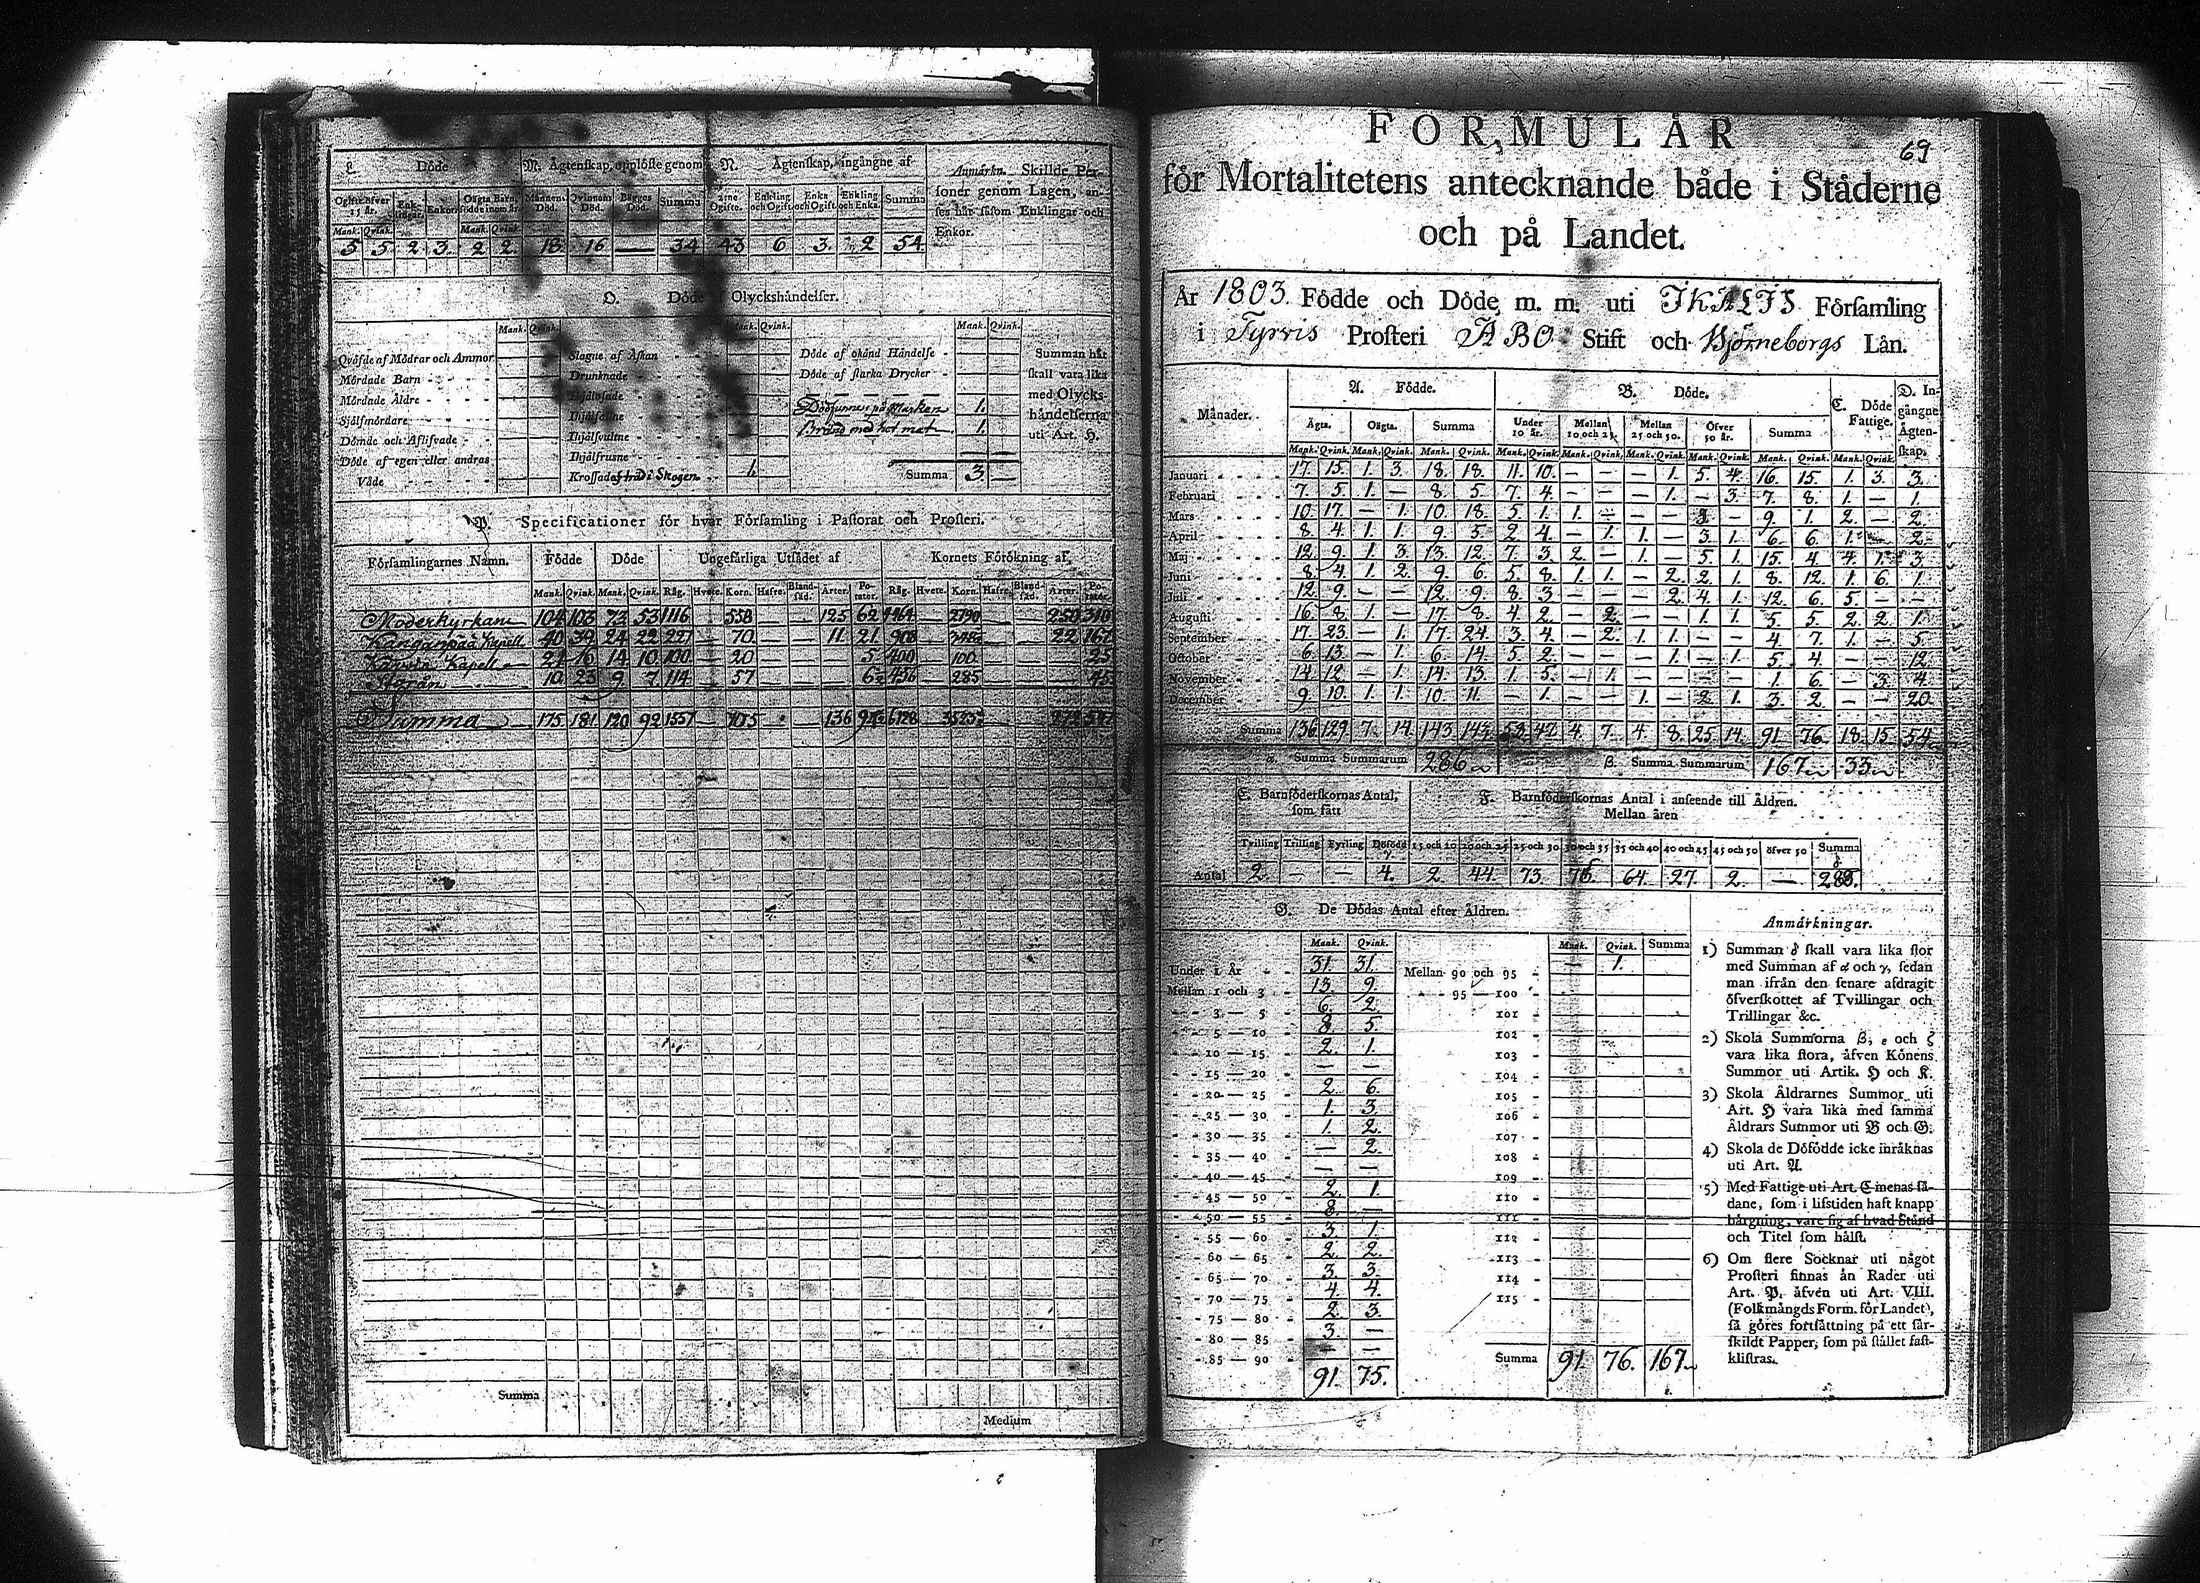 L. Döde
M. Ägtenskap, upplöste genom
N. Ägtenskap, ingångne af
Anmärkn. Skillde Personer genom Lagen, anses här såsom Enklingar och Enkor.
Ogifte öfver 15 år. Enklingar. Enkor. Oägta Barn, födde inom år. Mannens Död. Qvinnans Död. Bägges Död. Summa Enkling och Ogift. Enka och Ogift. Enkling och Enka. Summa
Mank. Qvink. Mank. Qvink.
5 5 2 3. 2 2. 18 16 — 34 43 6 3. 2 54.
O. Döde Olyckshändelser.
Mank. Qvink. Mank. Qvink. Mank. Qvink.
Qväfde af Mödrar och Ammor Slagne af Åskan Döde af okänd Händelse Summan här
Mördade Barn Drunknade Döde af starka Drycker skall vara lika
Mördade Äldre med Olycks-
Sjelfmördare på Marken 1. händelserna
Dömde och Aflifvade Bränd med het mat 1. uti Art. H.
Döde af egen eller andras
Våde Krossad af träd i Skogen 1. Summa 3. —
P. Specificationer för hvar Församling i Pastorat och Prosteri.
Församlingarnes Namn. Födde Döde Ungefärliga Utsädet af Kornets Förökning af
Mank. Qvink. Mank. Qvink. Råg. Hvete. Korn. Hafre. Blandsäd. Ärter. Potater. Råg. Hvete. Korn. Hafre. Blandsäd. Ärter. Potater.
Moderkyrkan 104 103 73 53 1116 — 558 — — 125 62 4464 — 2790 — — 250 310
Kanganpää Kapell 40 39 24 22 227 — 70 — — 11 21 908 — — — 22 167
Kapell 21 16 14 10 100 — 20 — — — 5 400 — 100 — — — 25
10 23 9 7 114 — 57 — — — 6½ 456 — 285 — — — 45
Summa 175 181 120 92 1557 — 705 136 6228 272
Summa
Medium
FORMULÄR
69
för Mortalitetens antecknande både i Städerne
och på Landet.
År 1803 Födde och Döde m. m. uti IKALIS Församling
i Tyrvis Prosteri ÅBO Stift och Björneborgs Län.
Månader. A. Födde. B. Döde. C. Döde Fattige. D. Ingångne Ägtenskap.
Ägta. Oägta. Summa Under 10 år. Mellan 10 och 25. Mellan 25 och 50. Öfver 50 år. Summa
Mank. Qvink. Mank. Qvink. Mank. Qvink. Mank. Qvink. Mank. Qvink. Mank. Qvink. Mank. Qvink. Mank. Qvink. Mank. Qvink.
Januari 17. 15. 1. 3. 18. 18. 11. 10. — — — 1. 5. 4. 16. 15. 1. 3. 3.
Februari 7. 5. 1. — 8. 5. 7. 4. — — — 1. — 3. 7. 8. 1. — 1.
Mars 10. 17. — 1. 10. 18. 5. 1. 1. — — — 3. — 9. 1. 2. — 2.
April 8. 4. 1. 1. 9. 5. 2. 4. — 1. 1. — 3. 1. 6. 6. 1. — 2.
Maj 12. 9. 1. 3. 13. 12. 7. 3. 2. — 1. — 5. 1. 15. 4. 4. 1. 3.
Juni 8. 4. 1. 2. 9. 6. 5. 8. 1. 1. — 2. 2. 1. 8. 12. 1. 6. 1.
Juli 12. 9. — — 12. 9. 8. 3. — — — 2. 4. 1. 12. 6. 5. — —
Augusti 16. 8. 1. — 17. 8. 4. 2. — 2. — — 1. 1. 5. 5. 2. 2. 1.
September 17. 23. — 1. 17. 24. 3. 4. — 2. 1. 1. — — 4. 7. 1. — 5.
October 6. 13. — 1. 6. 14. 5. 2. — — — 1. — 1. 5. 4. — — 12.
November 14. 12. — 1. 14. 13. 1. 5. — 1. — — — — 1. 6. — 3. 4.
December 9. 10. 1. 1. 10. 11. — 1. — — 1. — 2. 1. 3. 2. — — 20.
Summa 136. 129. 7. 14. 143. 143. 53. 47. 4. 7. 4. 8. 25. 14. 91. 76. 18. 15. 54.
α. Summa Summarum 286 β. Summa Summarum 167 33
E. Barnföderskornas Antal, som fått F. Barnföderskornas Antal i anseende till Åldren.
Mellan åren
Tvilling Trilling Fyrling Döfödd γ 15 och 20 20 och 25 25 och 30 30 och 35 35 och 40 40 och 45 45 och 50 öfver 50 Summa δ
Antal 2. — — 4. 2. 44. 73. 76. 64. 27. 2. — 288.
G. De Dödas Antal efter Åldren.
Mank. Qvink. Mank. Qvink. Summa
Under 1 År 31. 31. Mellan 90 och 95 — 1.
Mellan 1 och 3 13. 9. 95 — 100
3 — 5 6. 2. 101
5 — 10 8. 5. 102
10 — 15 2. 1. 103
15 — 20 — — 104
20 — 25 2. 6. 105
25 — 30 1. 3. 106
30 — 35 1. 2. 107
35 — 40 — 2. 108
40 — 45 — — 109
45 — 50 2. 1. 110
50 — 55 8. — 111
55 — 60 3. 1. 112
60 — 65 2. 2. 113
65 — 70 3. 3. 114
70 — 75 4. 4. 115
75 — 80 2. 3.
80 — 85 3. —
85 — 90 — —
91. 75. Summa 91. 76. 167
Anmärkningar.
1) Summan δ skall vara lika stor
med Summan af α och γ, sedan
man ifrån den senare afdragit
öfverskottet af Tvillingar och
Trillingar &c.
2) Skola Summorna β, ε och ζ
vara lika stora, äfven Könens
Summor uti Artik. H och K.
3) Skola Åldrarnes Summor uti
Art. H vara lika med samma
Åldrars Summor uti B och G.
4) Skola de Döfödde icke inräknas
uti Art. A.
5) Med Fattige uti Art. C menas så-
dane, som i lifstiden haft knapp
bärgning, vare sig af hvad Stånd
och Titel som hälst.
6) Om flere Socknar uti något
Prosteri finnas än Rader uti
Art. P, äfven uti Art. VIII.
(Folkmängds Form. för Landet),
så göres fortsättning på ett sär-
skildt Papper, som på stället fast-
klistras.